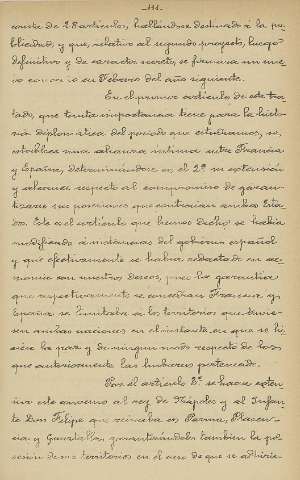 -111-
consta de 28 artículos, hallándose destinado á la pu-
blicidad, y que, relativo al segundo proyecto, luego
definitivo y de carácter secreto, se firmara un nue-
vo convenio en Febrero del año siguiente.
En el primer artículo de este tra-
tado, que tanta importancia tiene para la histo-
ria diplomática del período que estudiamos, se
establece una alianza íntima entre Francia
y España, determinándose en el 2º su extensión
y alcance respecto al compromiso de garan-
tizarse sus posesiones que contraían ambos Esta-
dos. Este es el artículo que hemos dicho se había
modificado á instancias del gobierno español
y que efectivamente se había redactado en ar-
monía con nuestros deseos, pues la garantía
que respectivamente se concedían Francia y
España se limitaba á los territorios que tuvie-
sen ambas naciones en el instante en que se hi-
ciere la paz y de ningún modo respecto de los
que anteriormente las hubieran pertenecido.
Por el artículo 3º se hacía exten-
sivo este convenio al rey de Nápoles y al Infan-
te Don Felipe que reinaba en Parma, Plasen-
cia y Guastalla, garantizándoles también la po-
sesión de sus territorios en el caso de que se adhirie-